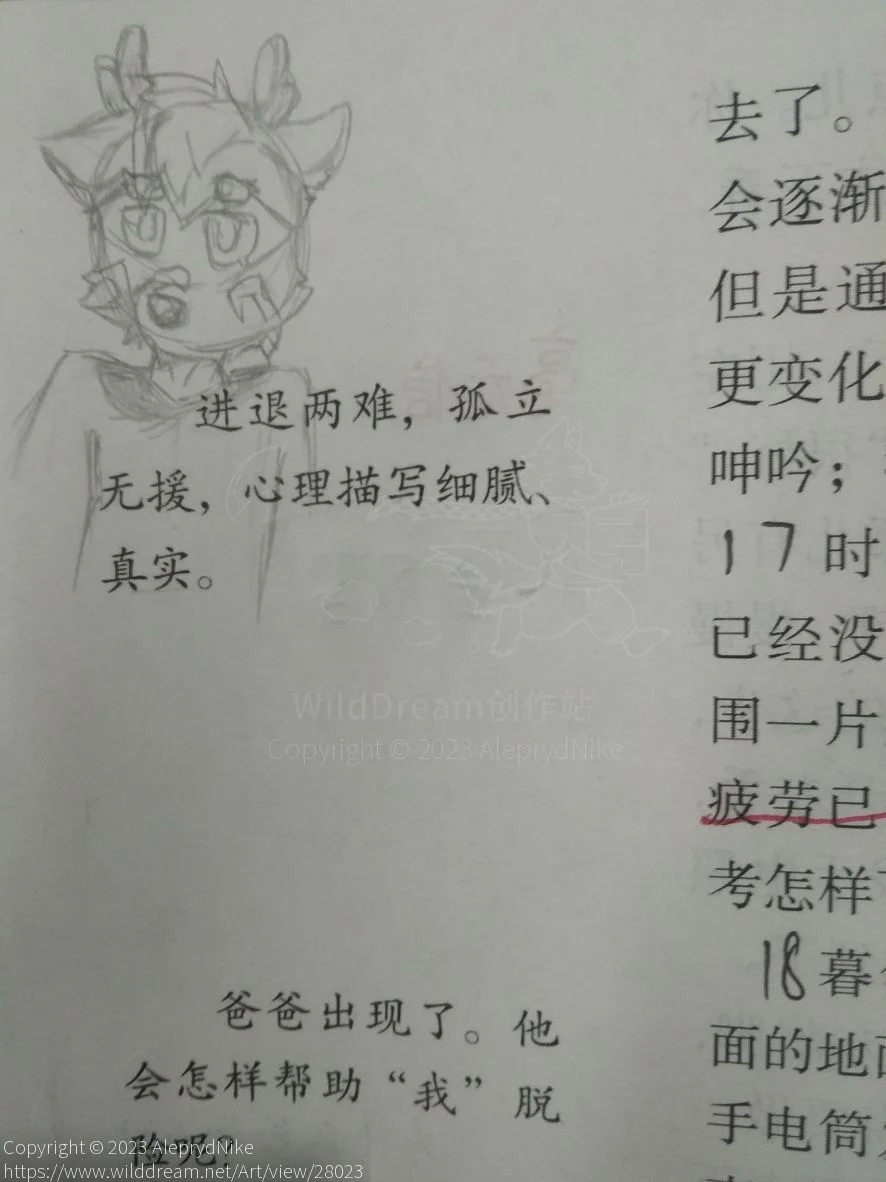 进退两难，孤立
无援，心理描写细腻、
真实。
爸爸出现了。他
会怎样帮助“我”脱
险呢？
去了。
会逐渐
但是通
更变化
呻吟；
17时
已经没
围一片
疲劳已
考怎样
18暮
面的地
手电筒
WildDream创作站
Copyright © 2023 AleprydNike
Copyright © 2023 AleprydNike
https://www.wilddream.net/Art/view/28023